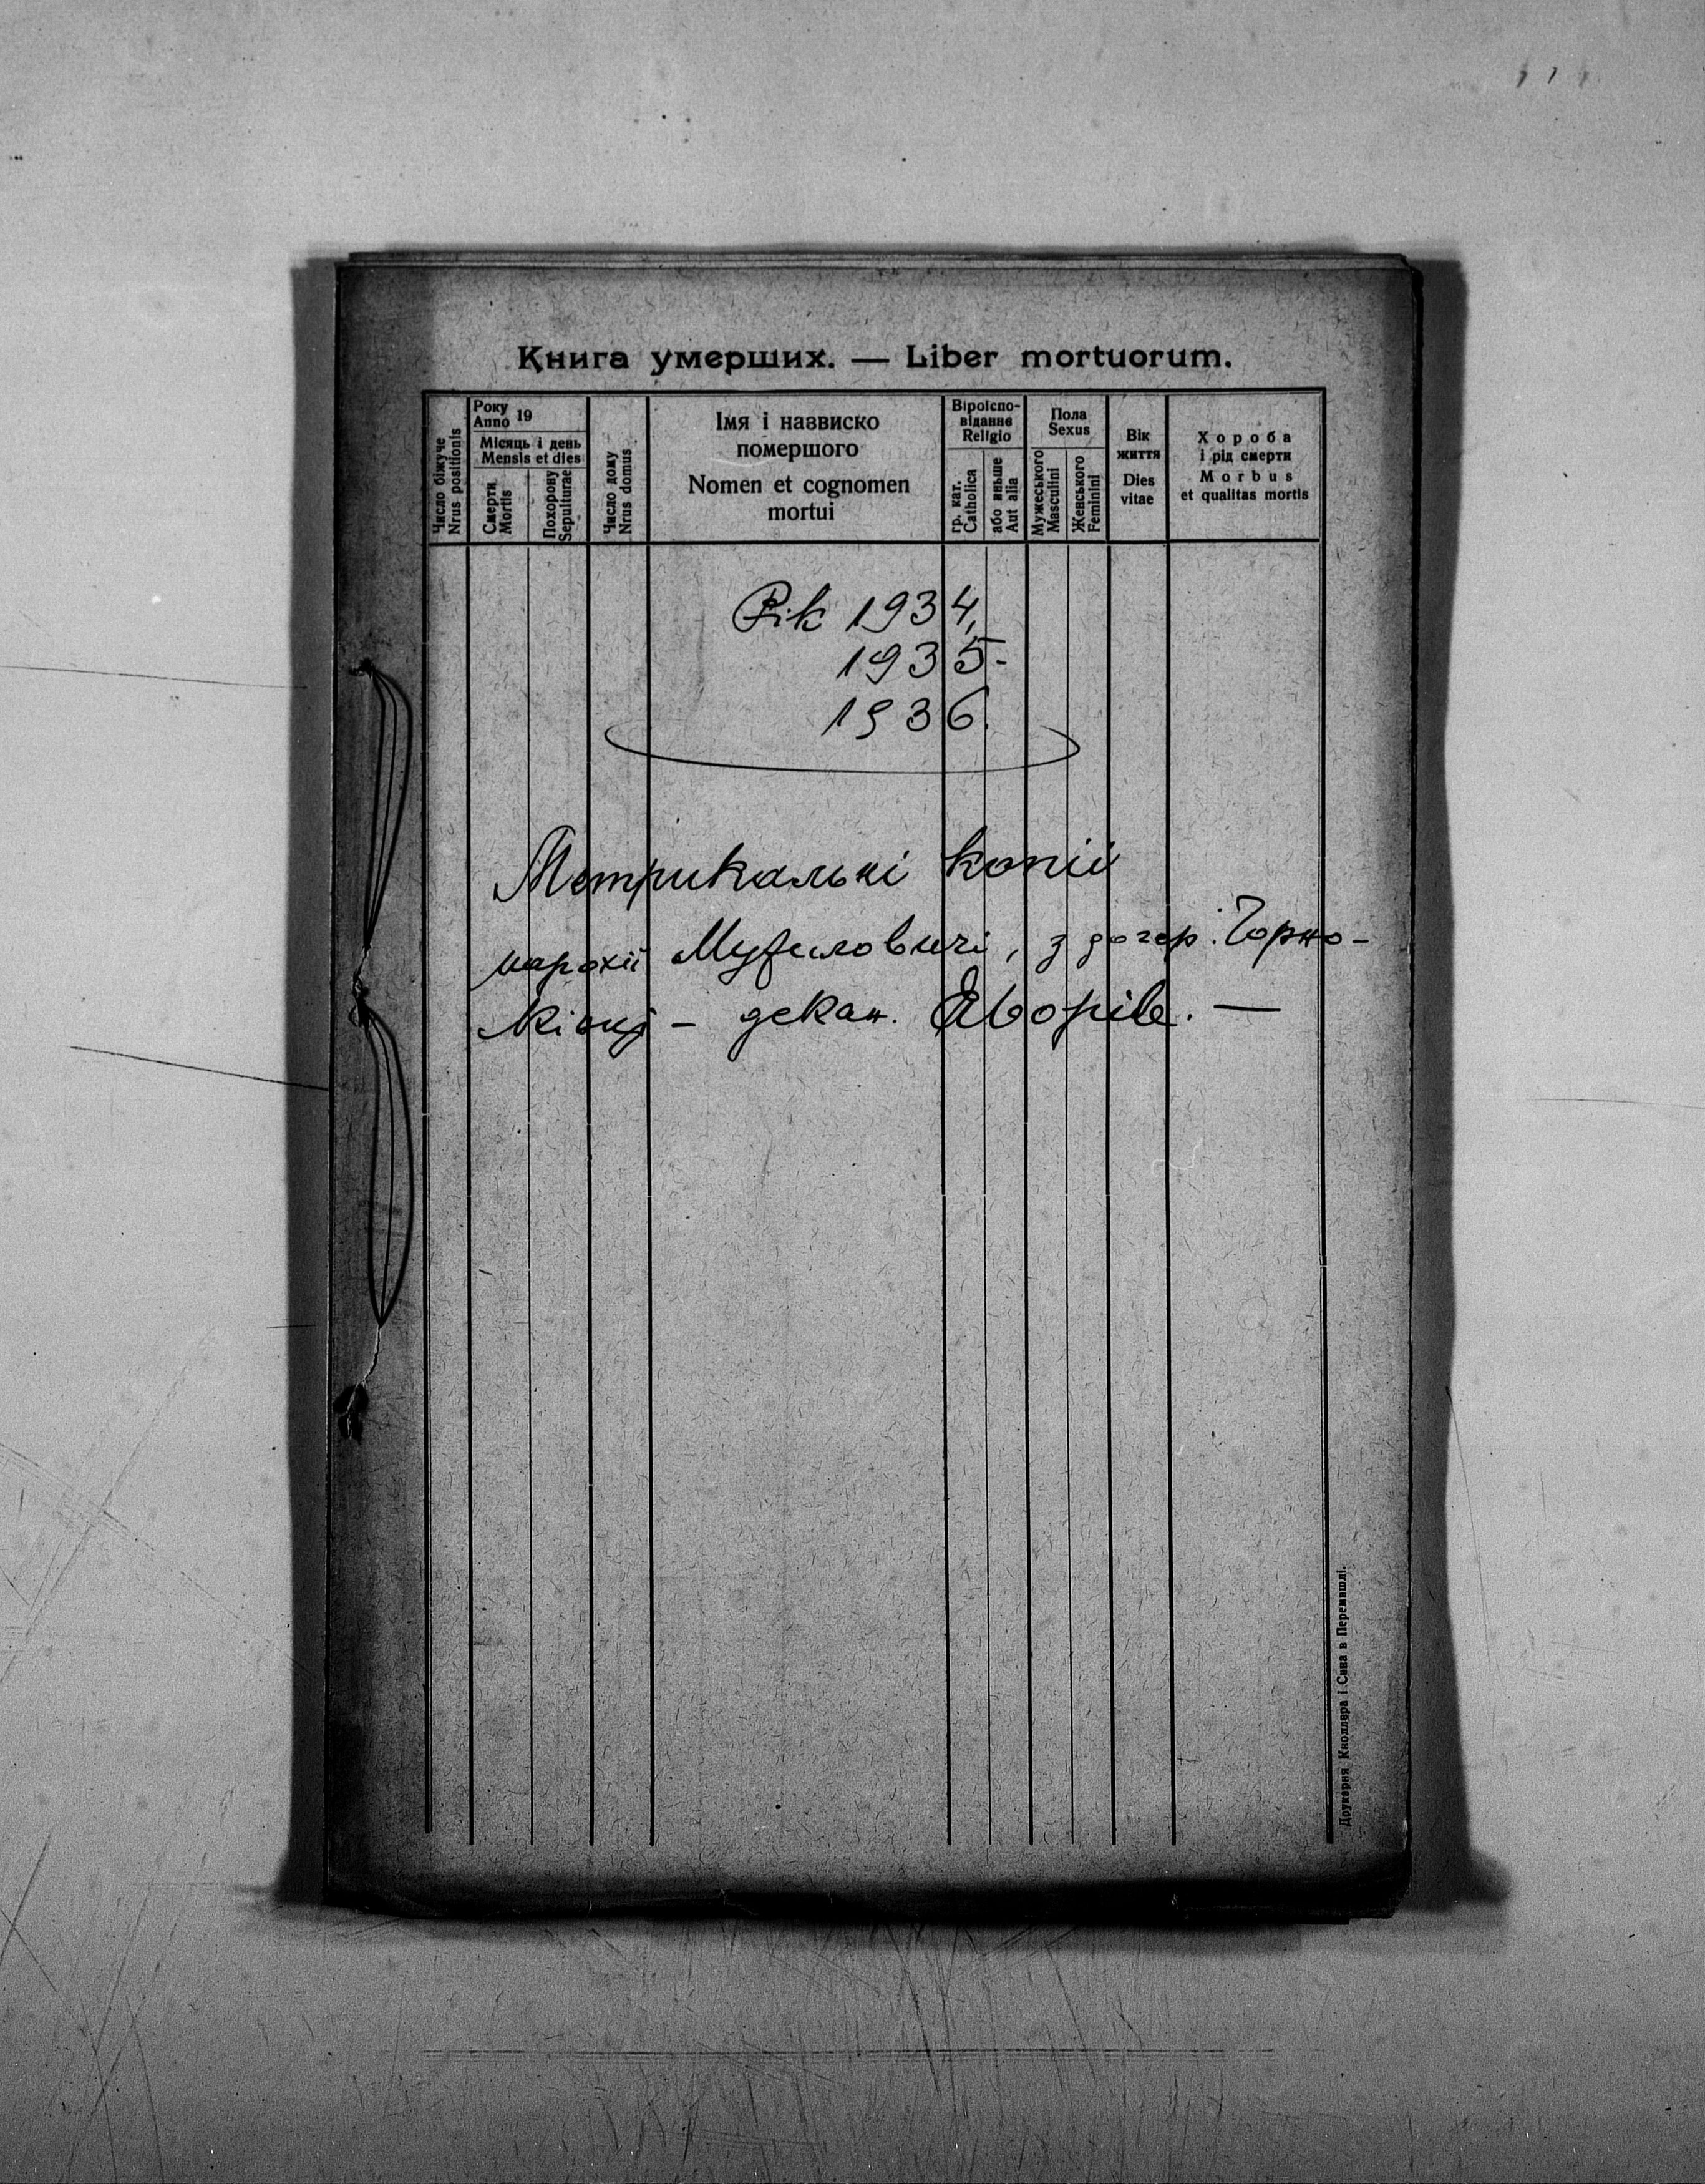 Книга умерших. — Liber mortuorum.
Число біжуче
Nrus positionis
Року
Anno 19
Місяць і день
Mensis et dies
Смерти
Mortis
Похорону
Sepulturae
Число дому
Nrus domus
Імя і назвиско
помершого
Nomen et cognomen
mortui
Віроіспо-
відание
Religio
гр. кат.
Catholica
або иньше
Aut alia
Пола
Sexus
Мужеського
Masculini
Женського
Feminini
Вік
життя
Dies
vitae
Хороба
і рід смерти
Morbus
et qualitas mortis
Рік 1934,
1935-
1936.
Метрикальні копії
парохії Мужиловичі, з дочер. Чорно-
кінці – декан. Яворів. —
Друкарня Кноллера і Сина в Перемишлі.